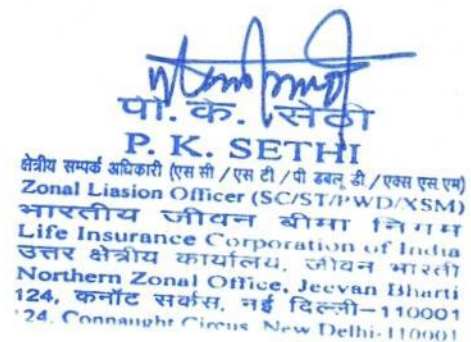 पी. के. सेठी
P. K. SETHI
क्षेत्रीय सम्पर्क अधिकारी (एस सी / एस टी / पी डबलू डी / एक्स एस एम)
Zonal Liasion Officer (SC/ST/PWD/XSM)
भारतीय जीवन बीमा निगम
Life Insurance Corporation of India
उत्तर क्षेत्रीय कार्यालय, जीवन भारती
Northern Zonal Office, Jeevan Bharti
124, कनॉट सर्कस, नई दिल्ली-110001
124, Connaught Circus, New Delhi-110001